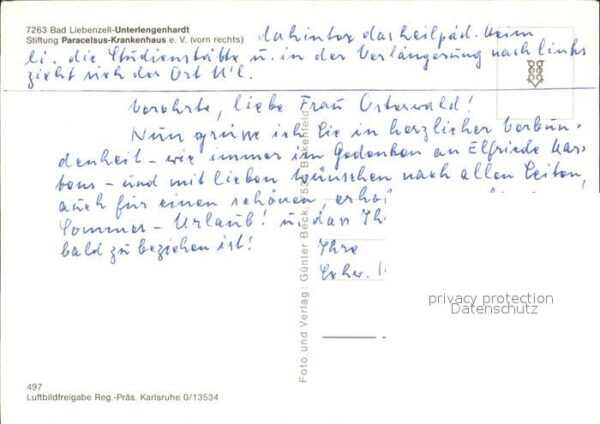 7263 Bad Liebenzell-Unterlengenhardt
Stiftung Paracelsus-Krankenhaus e. V. (vorn rechts)
dahinter das heilpäd. Heim
li. die Studienstätte u. in der Verlängerung nach links
zieht sich der Ort
Verehrte, liebe Frau Osterwald!
Nun grüsse ich Sie in herzlicher Verbun-
denheit – wie immer im Gedenken an Elfriede Kar-
stens – und mit lieben Wünschen nach allen Seiten,
auch für einen schönen, erhol
Sommer-Urlaub! u. dass Ih
bald zu beziehen ist!
Ihre
Schw.
Foto und Verlag: Günter Beck, Birkenfeld
privacy protection
Datenschutz
497
Luftbildfreigabe Reg.-Präs. Karlsruhe 0/13534